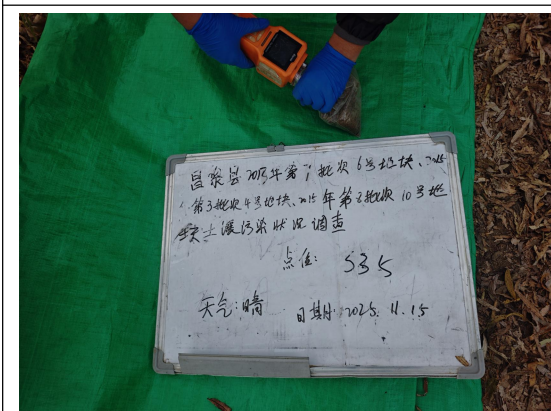 昌黎县2015年第7批次6号地块、2015
第3批次4号地块、2015年第8批次10号地
块土壤污染状况调查
点位: S35
天气:晴 日期:2025.11.15